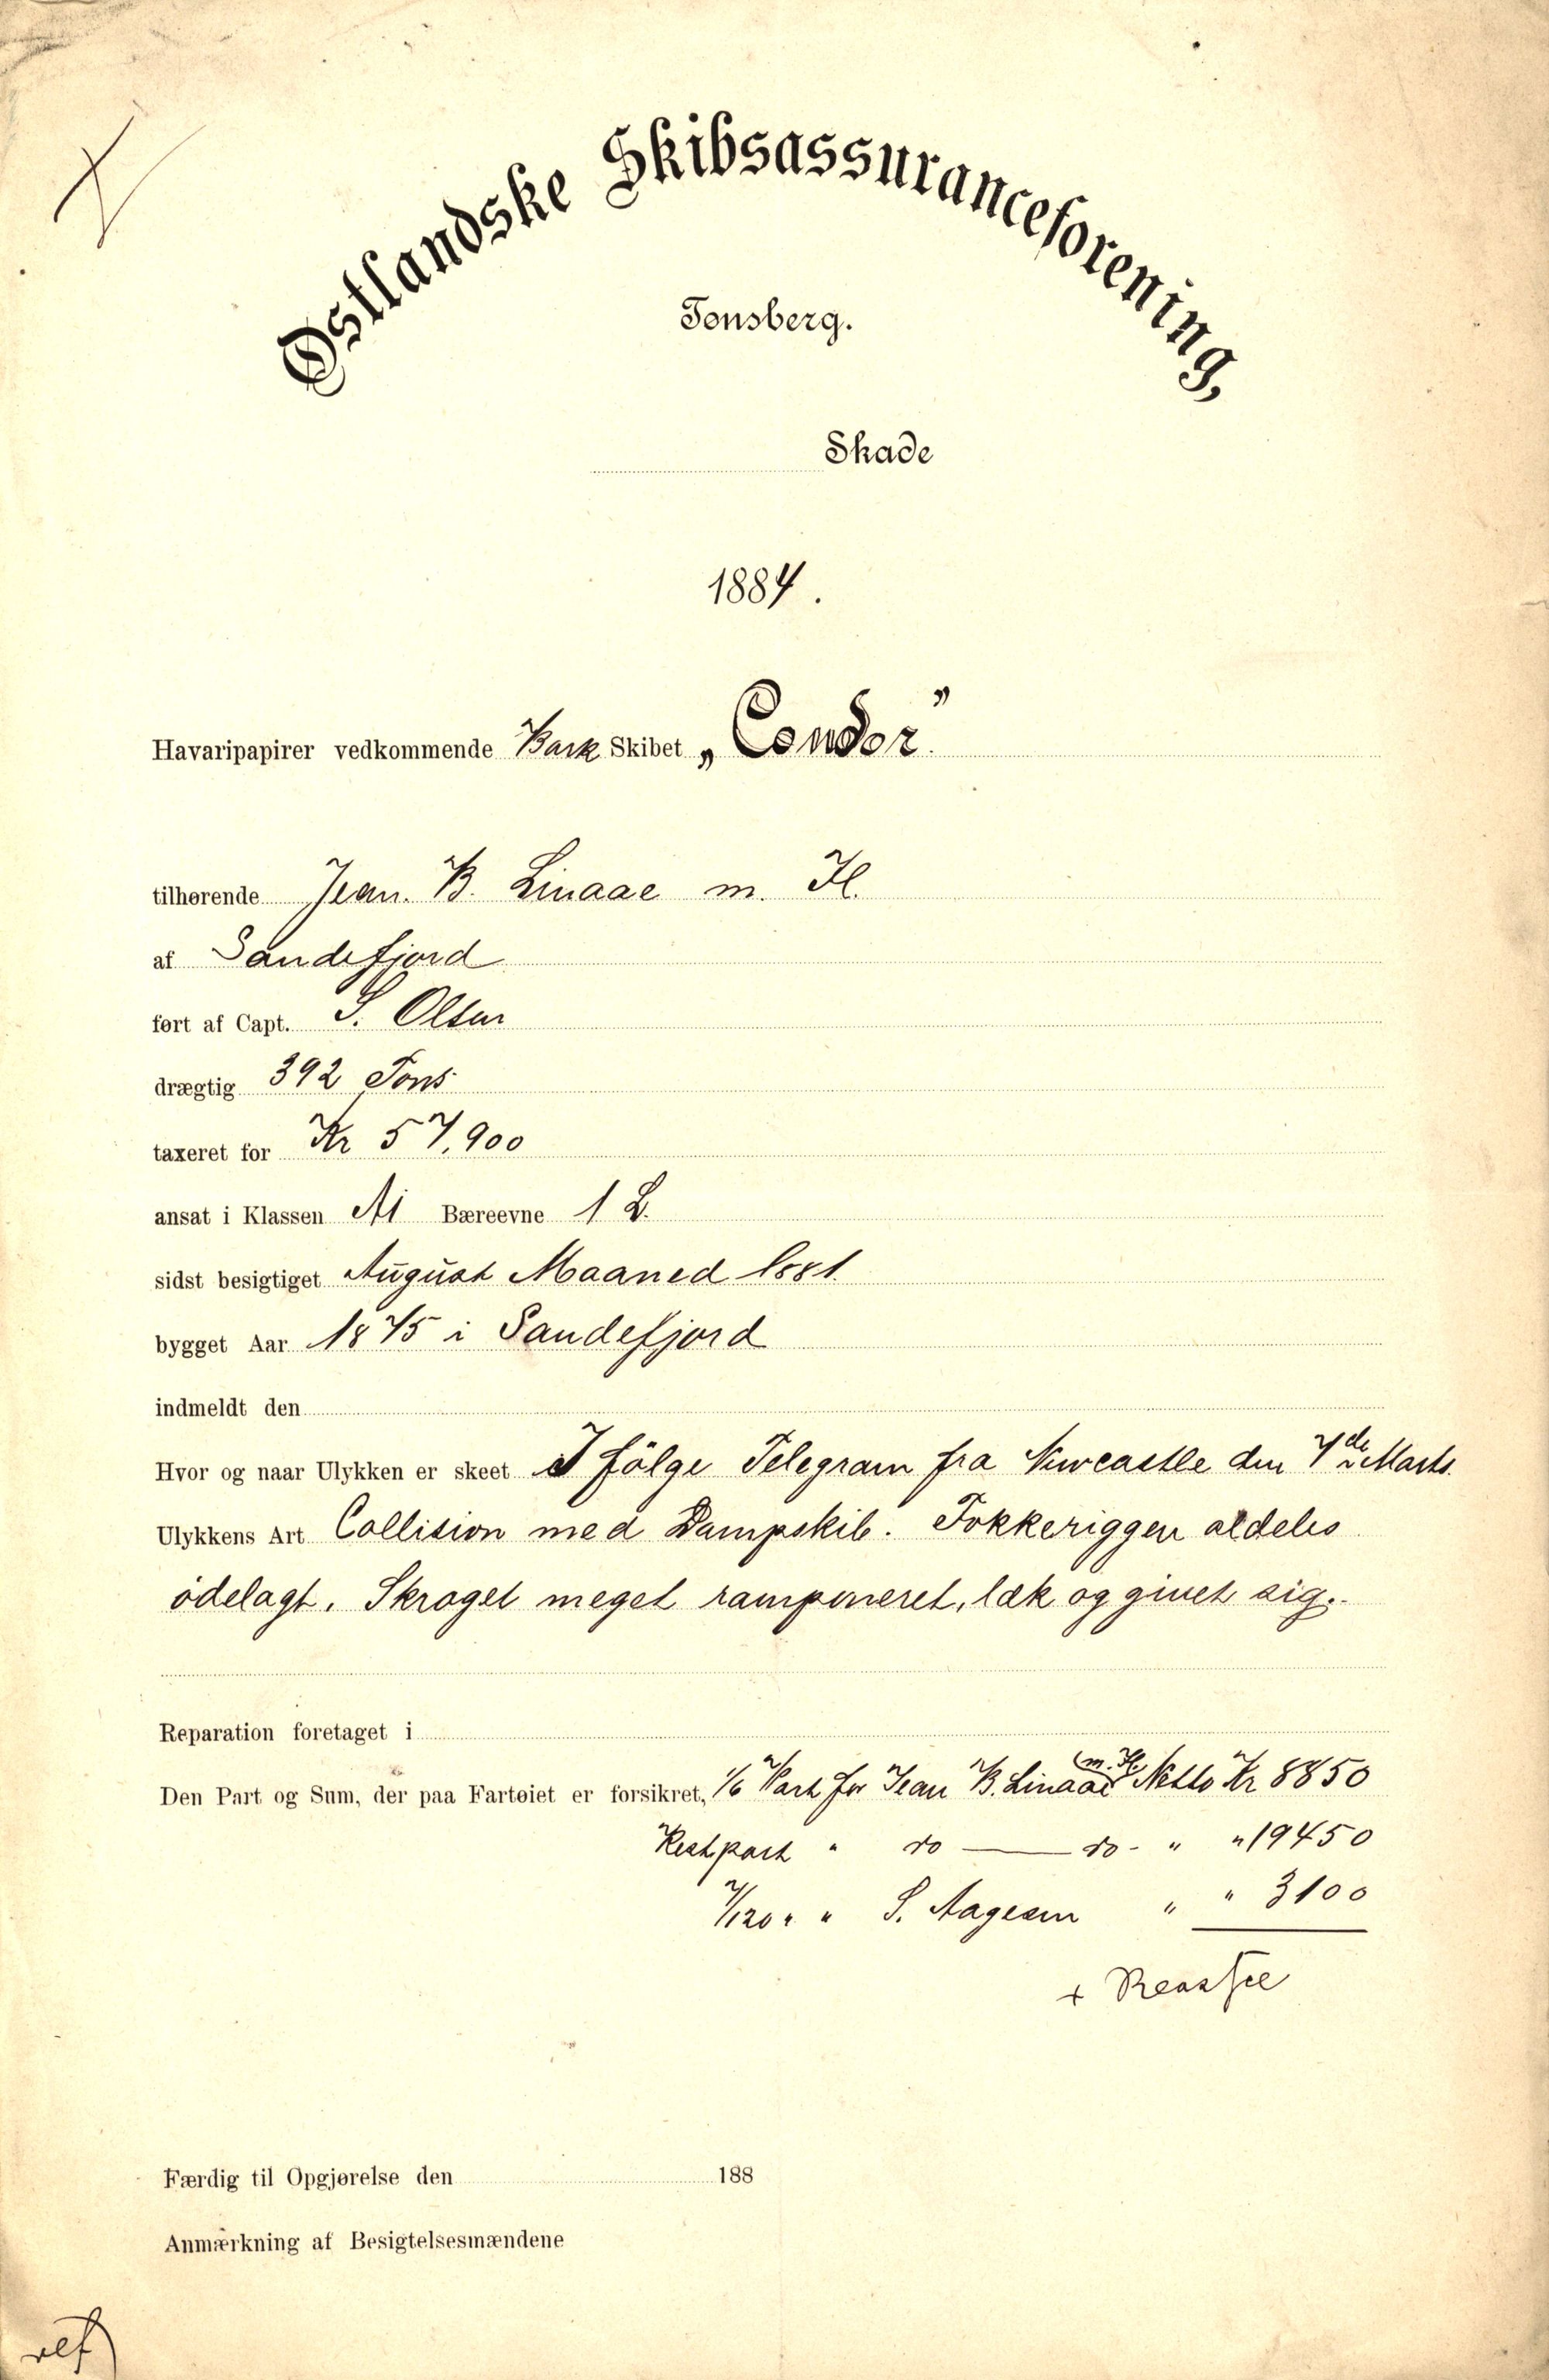 Østlandske Skibsassuranceforening,
Tønsberg.
Skade
1884.
Havaripapirer vedkommende Bark Skibet „Condor”
tilhørende Jean. B. Linaae m. Fl.
af Sandefjord
ført af Capt. S. Olsen
drægtig 392 Tons
taxeret for Kr 57,900
ansat i Klassen A1 Bæreevne 1 L.
sidst besigtiget August Maaned 1881.
bygget Aar 1875 i Sandefjord
indmeldt den
Hvor og naar Ulykken er skeet I følge Telegram fra Newcastle den 7de Marts.
Ulykkens Art Collision med Dampskib. Fokkeriggen aldeles
ödelagt. Skroget meget ramponeret, læk og givet sig.
Reparation foretaget i
Den Part og Sum, der paa Fartøiet er forsikret, 1/6 Part for Jean B. Linaae (m. Fl) Netto Kr 8850
Restpart " do — do - " " 19450
7/120 " " S. Aagesen " " 3100
+
Færdig til Opgjørelse den 188
Anmærkning af Besigtelsesmændene